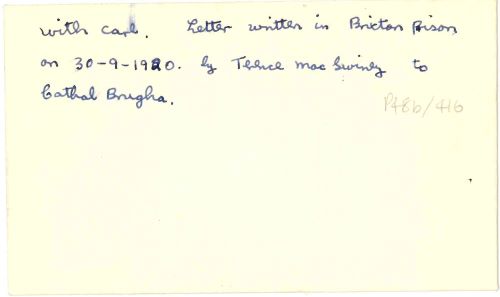 with card. Letter written in Brixton Prison
on 30-9-1920. by Terence MacSwiney to
Cathal Brugha.
P48b/416